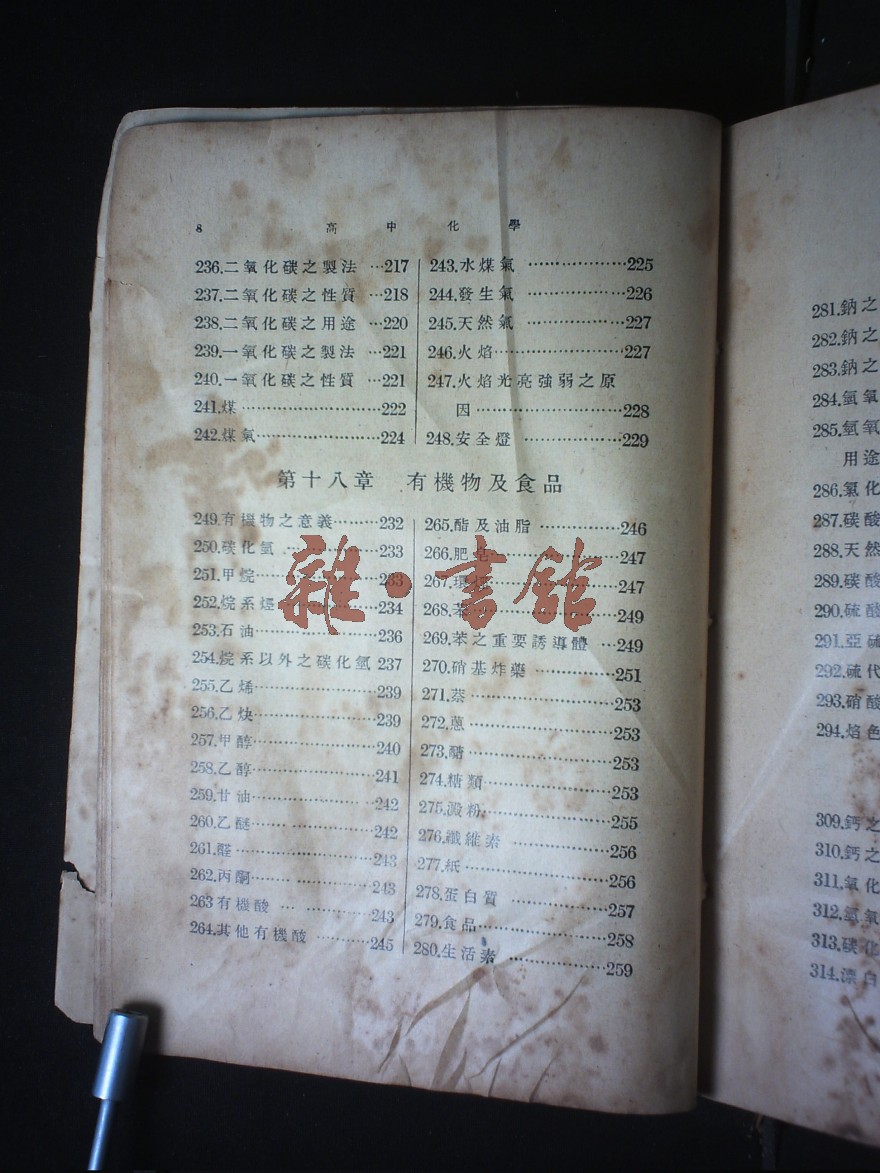 8 高中化學
236.二氧化碳之製法 …217
237.二氧化碳之性質 …218
238.二氧化碳之用途 …220
239.一氧化碳之製法 …221
240.一氧化碳之性質 …221
241.煤 ……………………222
242.煤氣…………………224
243.水煤氣 ………………225
244.發生氣 ………………226
245.天然氣 ………………227
246.火焰……………………227
247.火焰光亮強弱之原
因……………………228
248.安全燈 ………………229
第十八章 有機物及食品
249.有機物之意義………232
250.碳化氫 ………………233
251.甲烷…………………233
252.烷系烴………………234
253.石油…………………236
254.烷系以外之碳化氫 237
255.乙烯…………………239
256.乙炔…………………239
257.甲醇…………………240
258.乙醇…………………241
259.甘油…………………242
260.乙醚…………………242
261.醛……………………243
262.丙酮…………………243
263有機酸 ………………243
264.其他有機酸 …………245
265.酯及油脂 ……………246
266.肥皂…………………247
267.環烴…………………247
268.苯……………………249
269.苯之重要誘導體 …249
270.硝基炸藥 ……………251
271.萘……………………253
272.蒽……………………253
273.醣……………………253
274.糖類…………………253
275.澱粉…………………255
276.纖維素 ………………256
277.紙……………………256
278.蛋白質 ………………257
279.食品…………………258
280.生活素 ………………259
雜·書館
281.鈉之
282.鈉之
283.鈉之
284.氫氧
285.氫氧
用途
286.氯化
287.碳酸
288.天然
289.碳酸
290.硫酸
291.亞硫
292.硫代
293.硝酸
294.焰色
309.鈣之
310.鈣之
311.氧化
312.氫氧
313.碳化
314.漂白